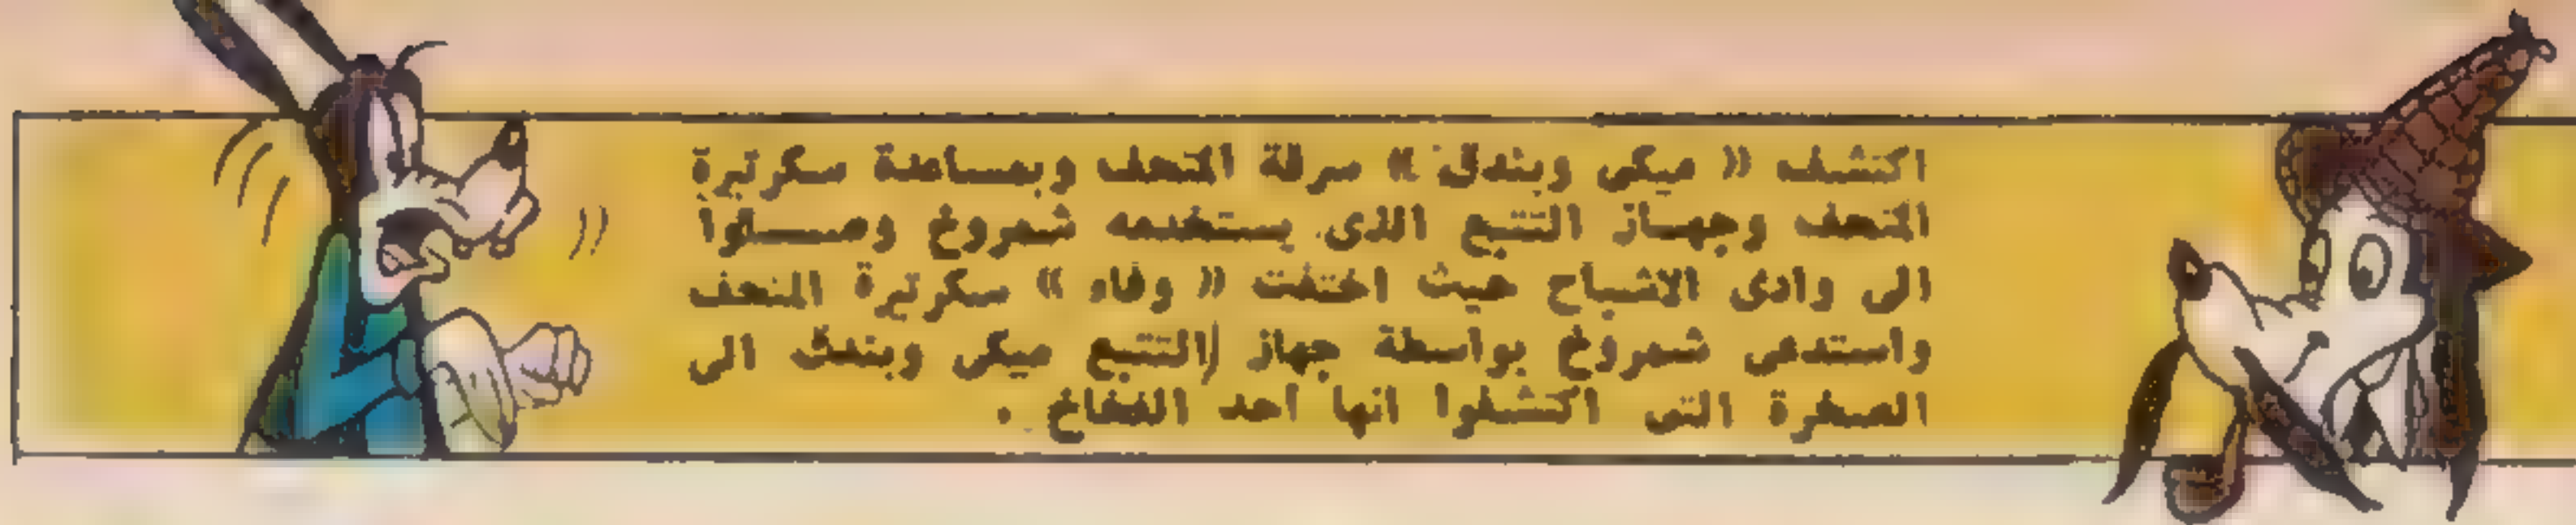 اكتشف « ميكى وبندق » سرقة المتحف وبمساعدة سكرتيرة
المتحف وجهاز التتبع الذى يستخدمه شمروخ وصلوا
الى وادى الاشباح حيث اختفت « وفاء » سكرتيرة المتحف
واستدعى شمروخ بواسطة جهاز التتبع ميكى وبندق الى
الصخرة التى اكتشفوا انها أحد الفخاخ .